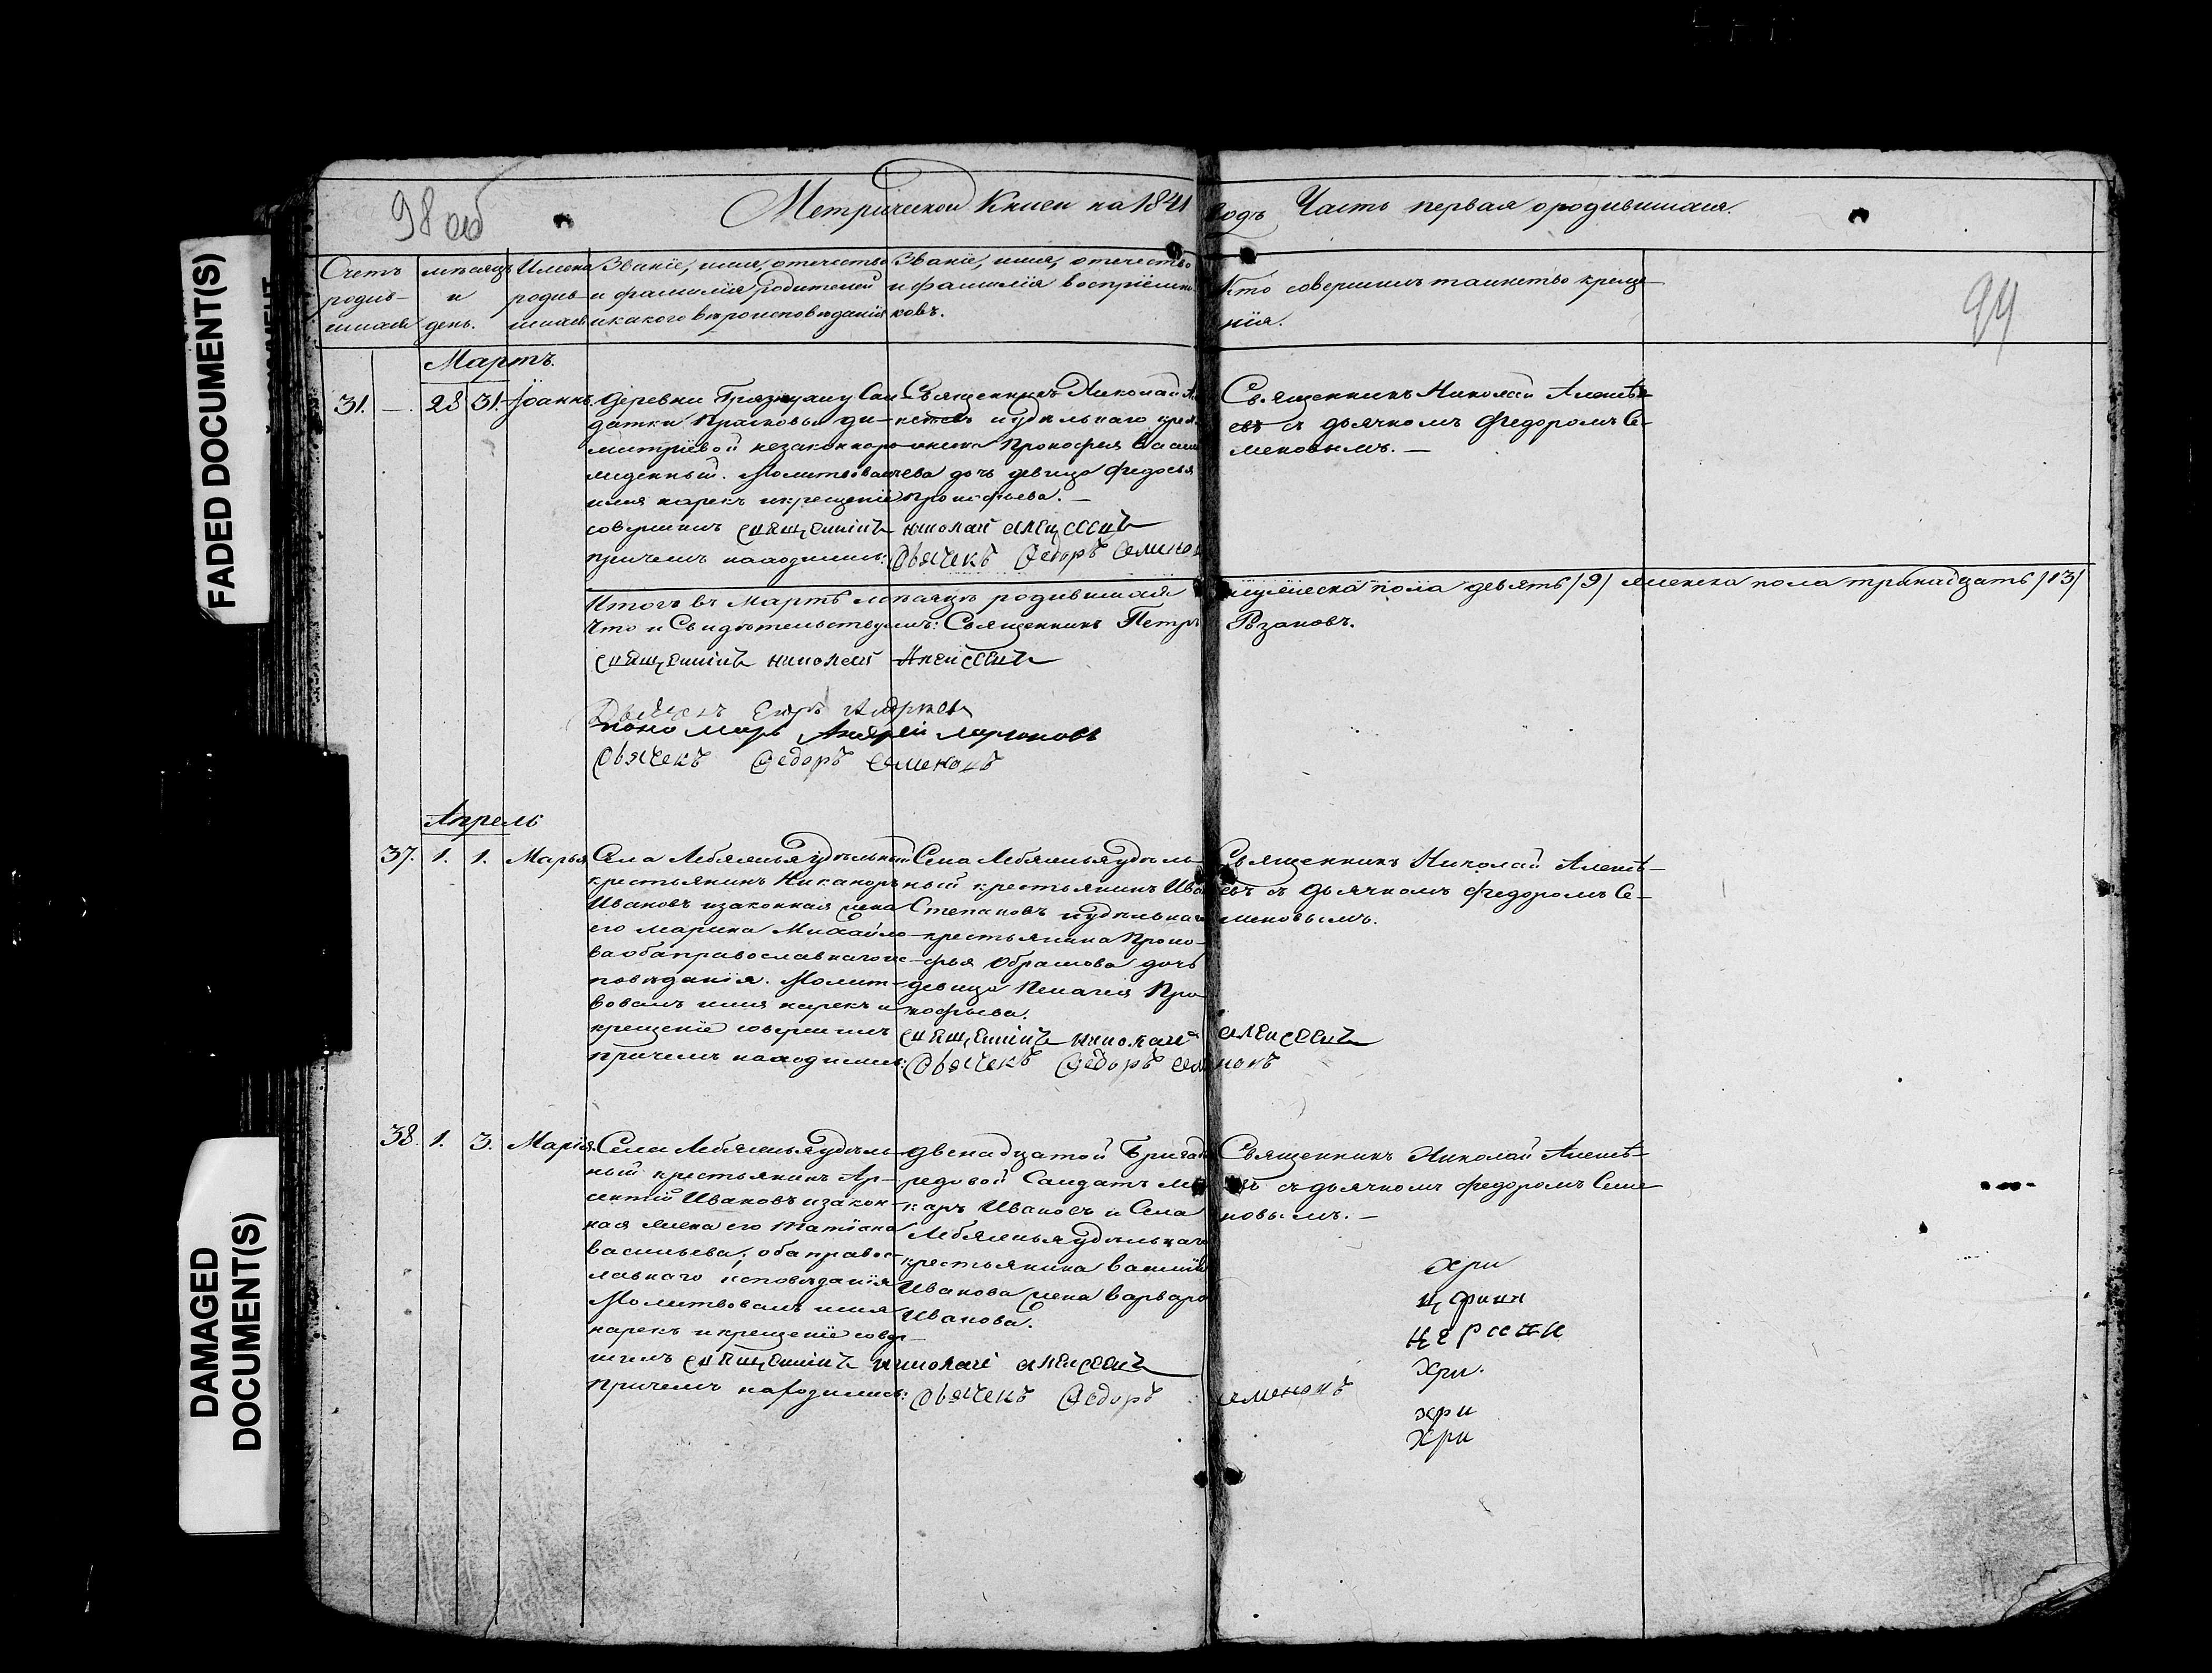 FADED DOCUMENT(S)
DAMAGED
DOCUMENT(S)
98 об
Метрической Книги на 1841 годъ Часть первая ородившихся.
99
Счетъ
родив-
шихся
мѣсяцъ
и
день.
Имена
родив-
шихся
Званіе, имя, отечество
и фамилія родителей
и какого вѣроисповѣданія
Званіе, имя, отечество
и фамилія воспріемни-
ковъ.
Кто совершилъ таинство креще-
нія.
Мартъ.
31. — 28 31. Іоаннъ.
деревни Сал
датки Прасковьи ди-
митріевой незаконноро-
жденный. Молитвовалъ
имя нарекъ и крещеніе
совершилъ священникъ николай алексеевъ
причемъ находились: Дьячекъ Федоръ Семенов
Священникъ Николай
и удѣльнаго крес
янина Прокофія
ева дочь девица Федосья
Прокофьева. —
Священникъ Николай Алексѣ-
евъ съ дьячкомъ Федоромъ Се-
меновымъ. —
Итого въ Мартѣ мѣсяцѣ родившихся мужеска пола девять /9/ женска пола тринадцать /13/
Что и Свидѣтельствуемъ: Священникъ Петръ Рзановъ.
священникъ николай Алексеевъ
Дьячекъ Егоръ
поно марь Андрей Ларионовъ
Дьячекъ Федоръ Семеновъ
Апрель
37. 1. 1. Марья
Села Лебяжья удѣльный
крестьянинъ Никаноръ
Ивановъ и законная жена
его Марина Михайло-
ва оба православнаго ис-
повѣданія. Молит-
вовалъ имя нарекъ и
крещеніе совершилъ священникъ николай алексеевъ
причемъ находились: Дьячекъ Федоръ Семеновъ
Села Лебяжья удѣль-
ный крестьянинъ Ива
Степановъ и удѣльнаго
крестьянина Проко-
фья Абрамова дочь
девица Пелагея Про-
кофьева.
Священникъ Николай Алексѣ-
евъ съ дьячкомъ Федоромъ Се-
меновымъ.
38. 1. 3. Марія.
Села Лебяжья удѣль-
ный крестьянинъ Ар-
сентій Ивановъ и закон-
ная жена его Татіана
Васильева; оба правос-
лавнаго исповѣданія
Молитвовалъ имя
нарекъ и крещеніе совер-
шилъ священникъ николай алексеевъ
Причемъ находились: Дьячекъ Федоръ Семеновъ
двенадцатой Бригады
редовой Салдатъ Ма
каръ Ивановъ и Села
Лебяжья удѣльнаго
крестьянина Василія
Иванова жена Варвара
Иванова.
Священникъ Николай Алексѣ-
евъ съ дьячкомъ Федоромъ Семе
новымъ. —
хри
Хри.
хри
Хри